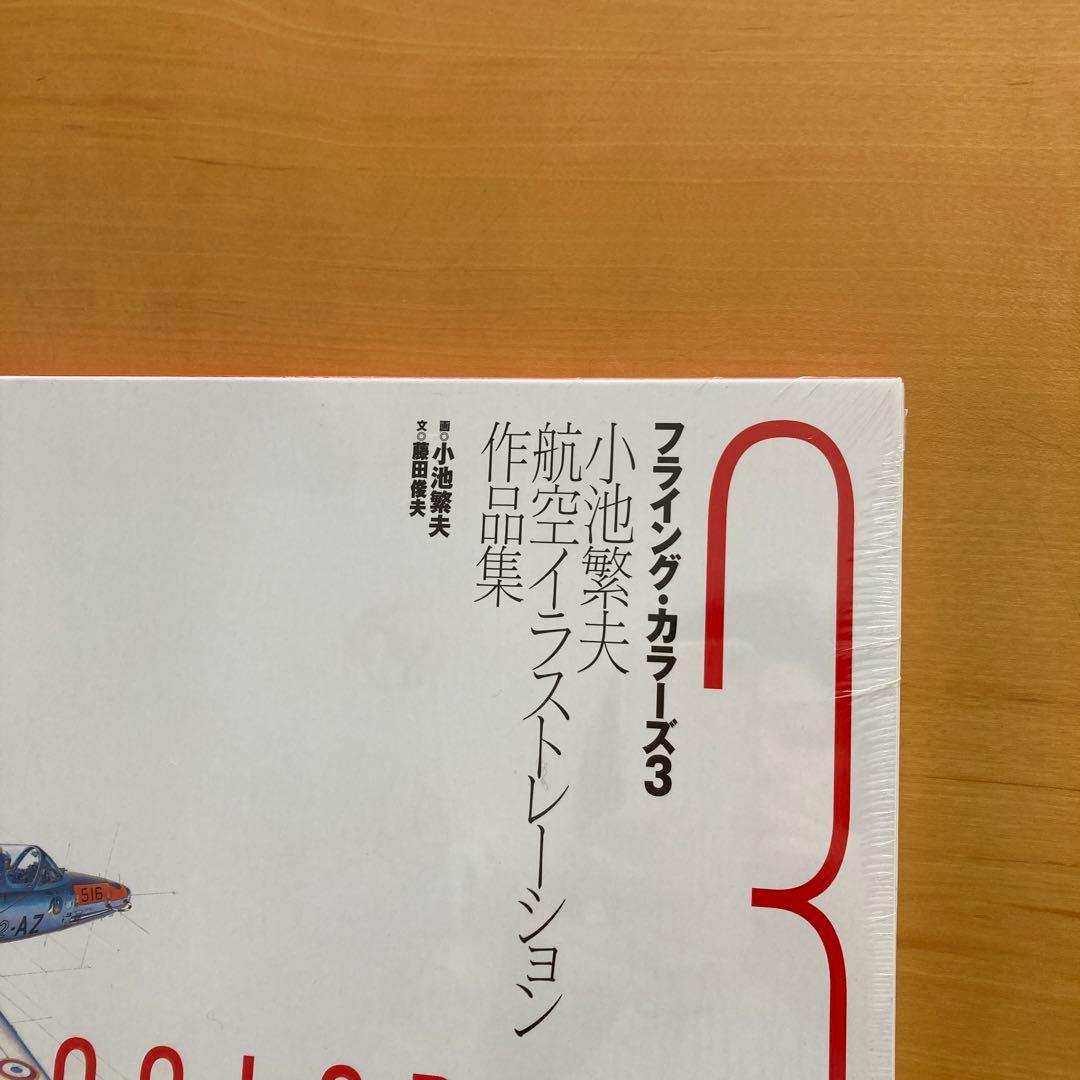 フライング・カラーズ3
小池繁夫
航空イラストレーション
作品集
画◎小池繁夫
文◎藤田俊夫
3
516
2-AZ
COLOR